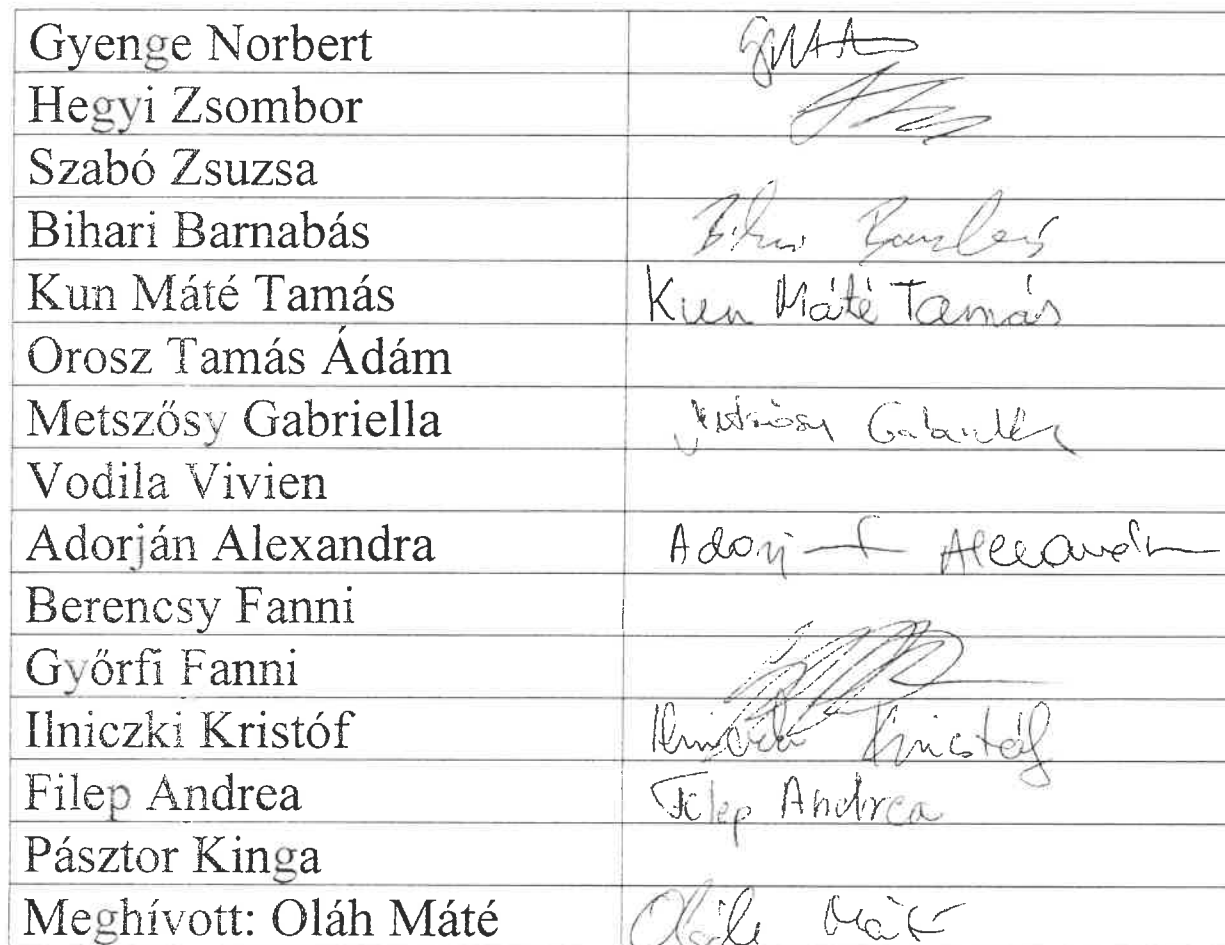 Gyenge Norbert
Hegyi Zsombor
Szabó Zsuzsa
Bihari Barnabás Bihari Barnabás
Kun Máté Tamás Kun Máté Tamás
Orosz Tamás Ádám
Metszősy Gabriella Metszősy Gabriella
Vodila Vivien
Adorján Alexandra Adorján Alexandra
Berencsy Fanni
Győrfi Fanni
Ilniczki Kristóf Ilniczki Kristóf
Filep Andrea Filep Andrea
Pásztor Kinga
Meghívott: Oláh Máté Oláh Máté